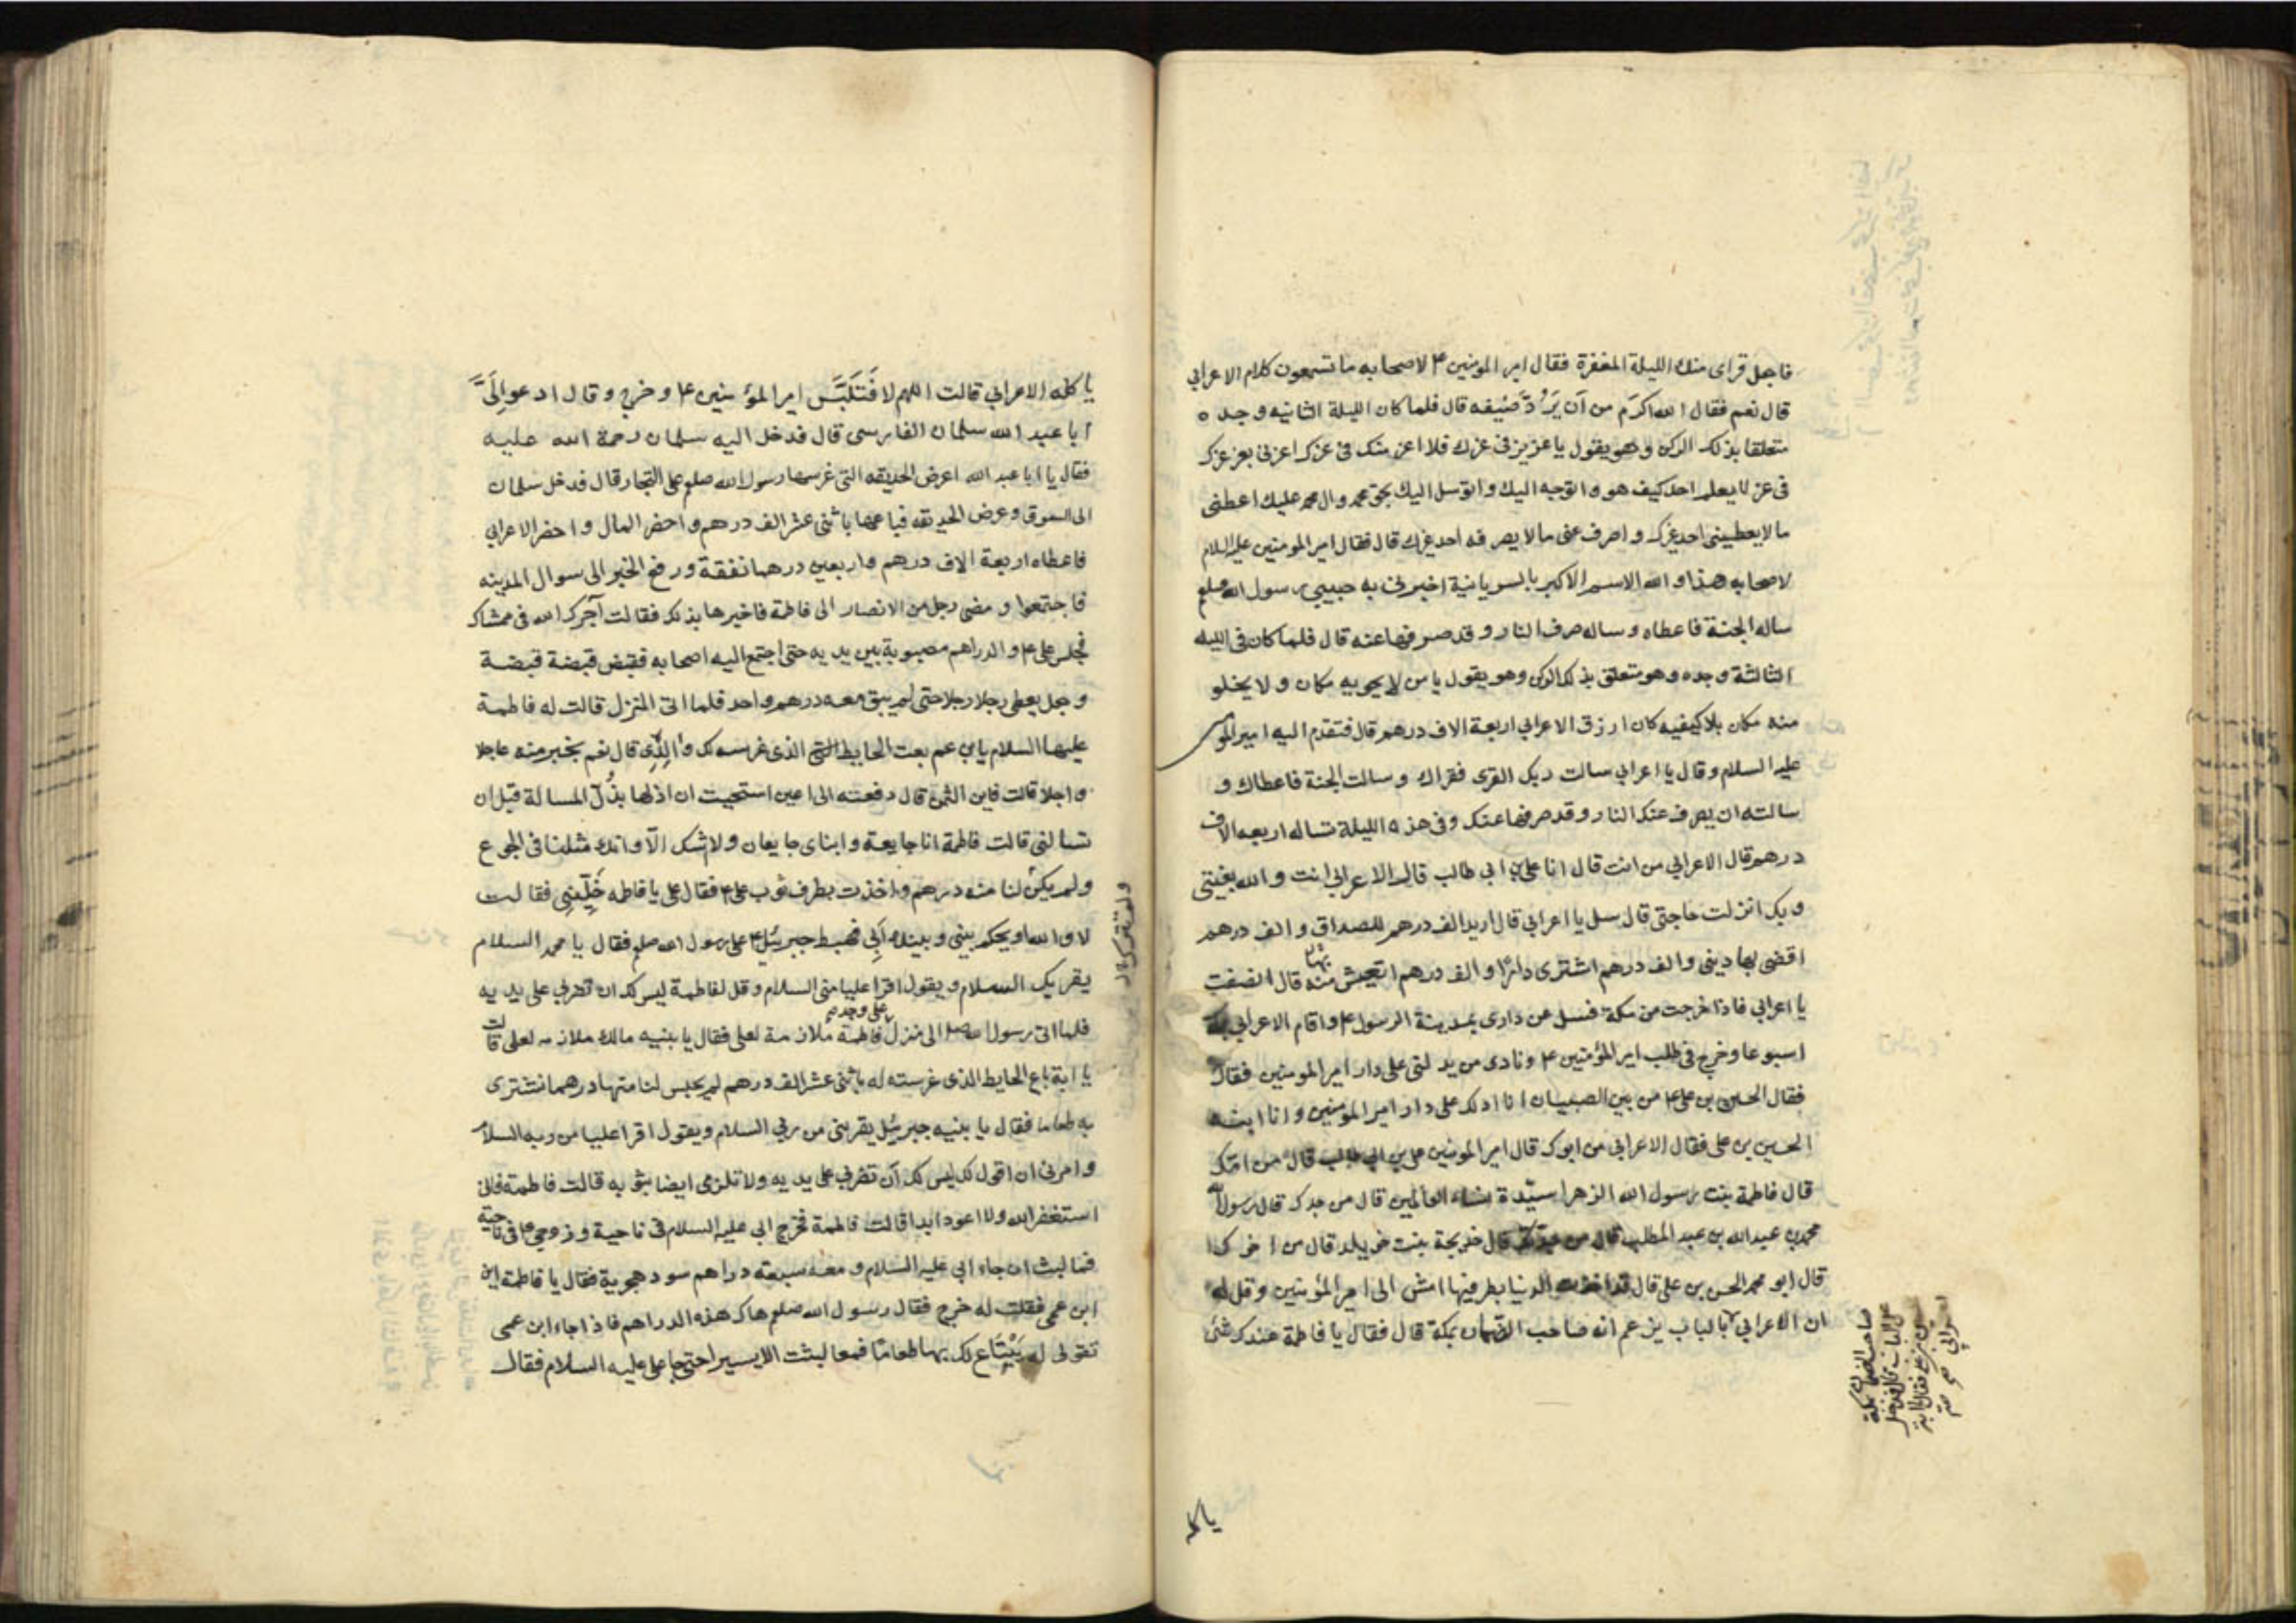 فاجعل قراى منك الليلة المغفرة فقال امير المومنين ۴ لاصحابه ما تسمعون كلام الاعرابي
قال نعم فقال الله اكرَم من اَن يَرُدَّ ضَيفه قال فلما كان الليلة الثانيه وجده
متعلقا بذلك الركن وهو يقول يا عزيز فى عزك فلا اعز منك فى عزك اعزنى بعز عزك
فى عز لا يعلم احد كيف هو و اتوجه اليك و اتوسل اليك بحق محمد وال محمد عليك اعطنى
ما لا يعطينى احد غيرك و اصرف عنى ما لا يصرفه احد غيرك قال فقال امير المومنين عليه السلام
لاصحابه هذا و الله الاسم الاكبر بالسريانية اخبرنى به حبيبى رسول الله صلعم
ساله الجنة فاعطاه و ساله صرف النار و قد صرفها عنه قال فلما كان فى الليله
الثالثة وجده وهو متعلق بذلك الركن وهو يقول يا من لا يحويه مكان و لا يخلو
منه مكان بلا كيفيه كان ارزق الاعرابي اربعة الاف درهم قال فتقدم اليه امير المو
عليه السلام و قال يا اعرابي سالت ربك القرى فقراك و سالت الجنة فاعطاك و
سالته ان يصرف عنك النار و قد صرفها عنك و فى هذه الليلة تساله اربعه الاف
درهم قال الاعرابي من انت قال انا على بن ابي طالب قال الاعرابى انت و الله بغيتى
و بك انزلت حاجتى قال سل يا اعرابي قال اريد الف درهم للصداق و الف درهم
اقضى بها دينى و الف درهم اشترى دارًا و الف درهم اتعيش منه قال انصفت
يا اعرابي فاذا خرجت من مكة فسل عن دارى بمدينة الرسول ۴ و اقام الاعرابي بمكة
اسبوعا و خرج فى طلب امير المؤمنين ۴ و نادى من يدلنى على دار امير المومنين فقال
فقال الحسين بن على ۴ من بين الصبيان انا ادلك على دار امير المومنين و انا ابنه
الحسين بن على فقال الاعرابي من ابوك قال امير المومنين على بن ابي طالب قال من امك
قال فاطمة بنت رسول الله الزهرا سيّدة نساء العالمين قال من جدك قال رسول الله
محمد بن عبدالله بن عبد المطلب قال من جدتك قال خديجة بنت خويلد قال من اخوك
قال ابو محمد الحسن بن على قال قد اخذت الدنيا بطرفيها امش الى امير المؤمنين و قل له
ان الاعرابي بالباب يزعم انه صاحب الضمان بمكة قال فقال يا فاطمة عندك شئ
يا كله
يا كله الاعرابي قالت اللهم لا فَتَلَبَّس امير المؤمنين ۴ و خرج و قال ادعوا لى
ابا عبد الله سلمان الفارسى قال فدخل اليه سلمان رحمة الله عليه
فقال يا ابا عبد الله اعرض الحديقه التى غرسها رسول الله صلعم على التجار قال فدخل سلمان
الى السوق و عرض الحديقه فباعها باثنى عشر الف درهم و احضر المال و احضر الاعرابي
فاعطاه اربعة الاف درهم و اربعين درهما نفقة و رفع الخبر الى سوال المدينه
فاجتمعوا و مضى رجل من الانصار الى فاطمة فاخبرها بذلك فقالت آجرك الله فى ممشاك
فجلس على ۴ و الدراهم مصبوبة بين يديه حتى اجتمع اليه اصحابه فقبض قبضة قبضة
و جعل يعطى رجلا رجلا حتى لم يبق معه درهم واحد فلما اتى المنزل قالت له فاطمة
عليها السلام يابن عم بعت الحايط الذى غرسه لك والدى قال نعم بخير منه عاجلا
و اجلا قالت فاين الثمن قال دفعته الى اعين استحييت ان اذلها بذُل المسالة قبل ان
تسالنى قالت فاطمة انا جايعة و ابناى جايعان و لا شك الّا و انك مثلنا فى الجوع
و لم يكن لنا منه درهم و اخذت بطرف ثوب على ۴ فقال على يا فاطمه خَلِّينى فقالت
لا و الله او يحكم بينى و بينك اَبي فهبط جبرئيل ۴ على رسول الله صلعم فقال يا محمد السلام
يقريك السلام و يقول اقرا عليا منى السلام و قل لفاطمة ليس لك ان تضربي على يديه
فلما اتى رسول الله صلعم الى منزل على وجد فاطمة ملازمة لعلى فقال يا بنيه مالك ملازمه لعلى قالت
يا ابة باع الحايط الذى غرسته له باثنى عشر الف درهم لم يحبس لنا منها درهما نشترى
به طعاما فقال يا بنيه جبرئيل يقرينى من ربي السلام و يقول اقرا عليا من ربه السلام
و امرنى ان اقول لك ليس لك اَن تضربي على يديه و لا تلزمى ايضا بثوبه قالت فاطمة فانى
استغفر الله و لا اعود ابدا قالت فاطمة فخرج ابي عليه السلام فى ناحية و زوجى ۴ فى ناحية
فما لبث ان جاء ابي عليه السلام و معه سبعته دراهم سود هجرية فقال يا فاطمة اين
ابن عمى فقلت له خرج فقال رسول الله صلعم هاك هذه الدراهم فاذا جاء ابن عمى
تقولى له يَبْتَاع لك بها طعامًا فما لبثت الا يسيرا حتى جا على عليه السلام فقال